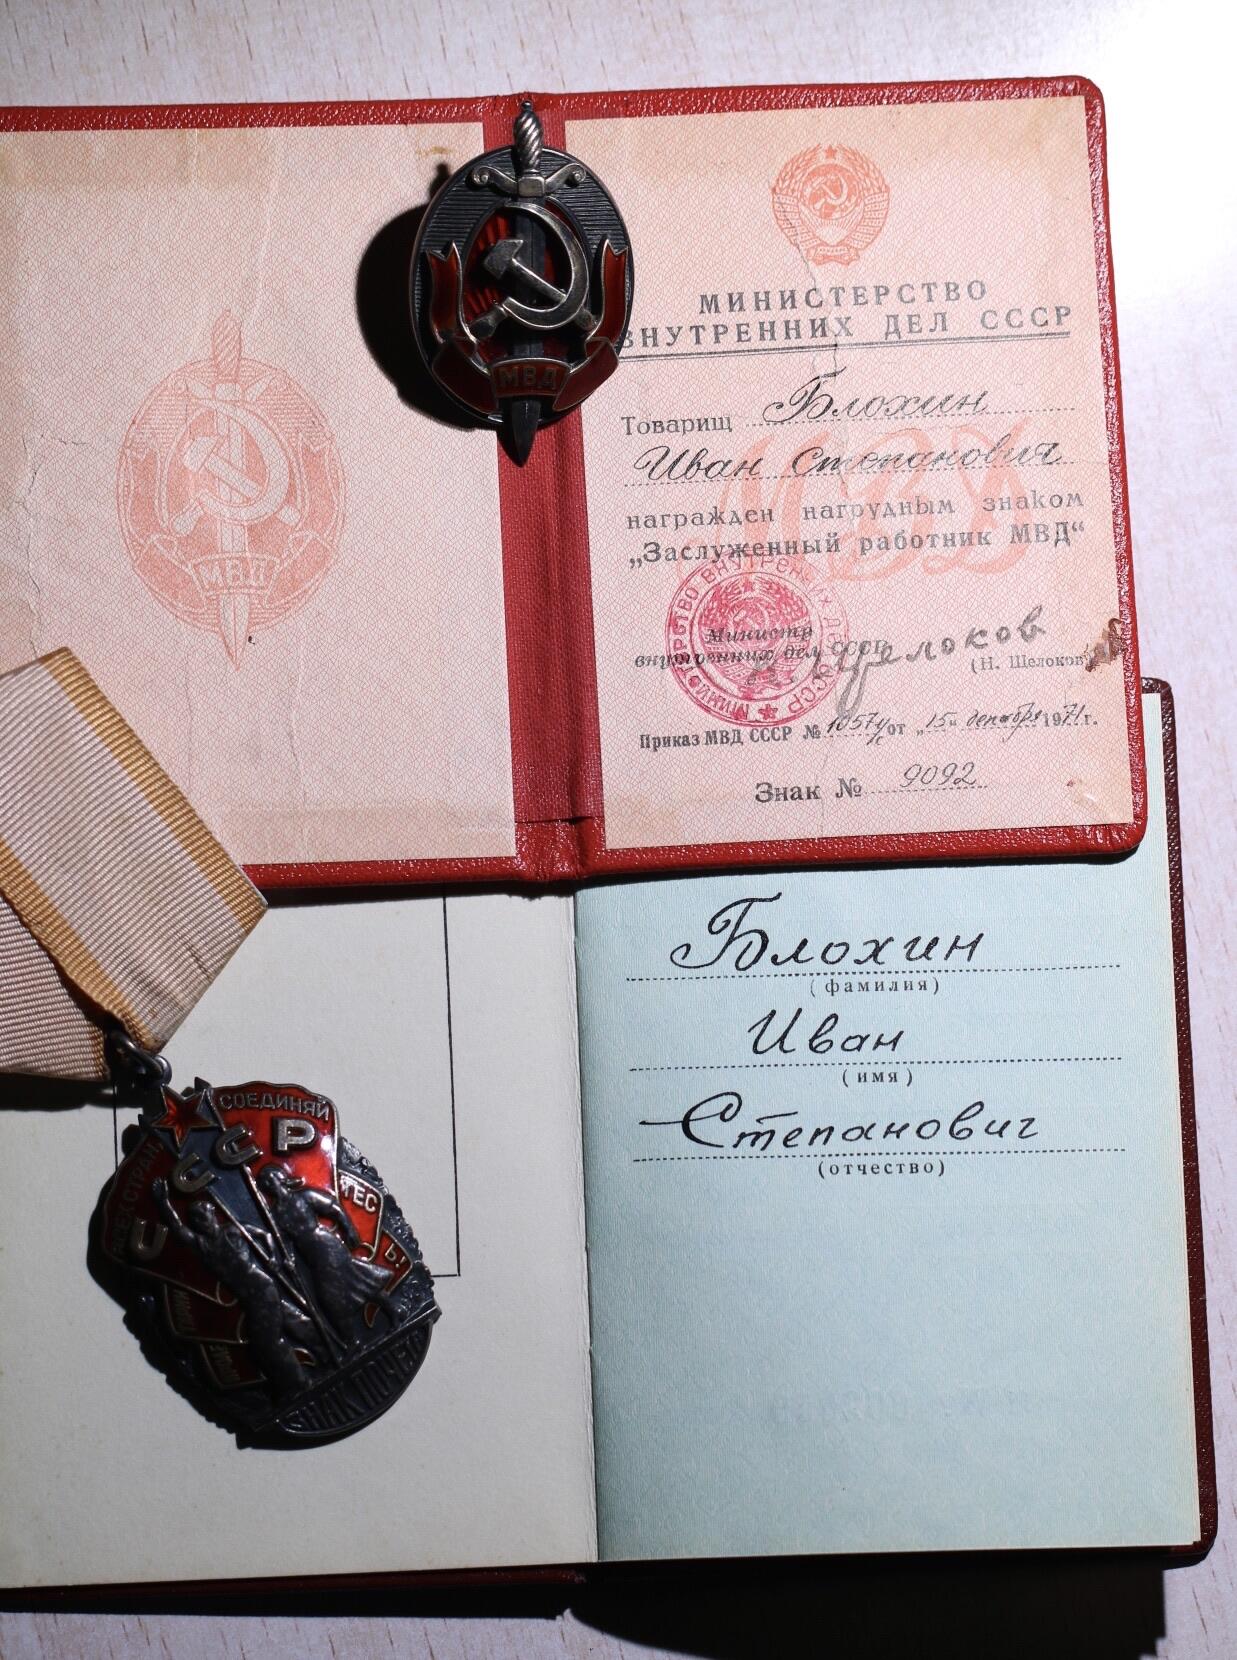 МВД
МВД
МИНИСТЕРСТВО
ВНУТРЕННИХ ДЕЛ СССР
Товарищ Блохин
Иван Степанович
МВД
награжден нагрудным знаком
„Заслуженный работник МВД“
Министр
внутренних дел СССР
Н. Щелоков
(Н. Щелоков)
Приказ МВД СССР № от „15“ декабря 1971 г.
Знак № 9092
Блохин
(фамилия)
Иван
(имя)
Степанович
(отчество)
СОЕДИНЯЙ
ТЕС
Ь!
ВСЕХ СТРАН
СССР
ЗНАК ПОЧЕТА